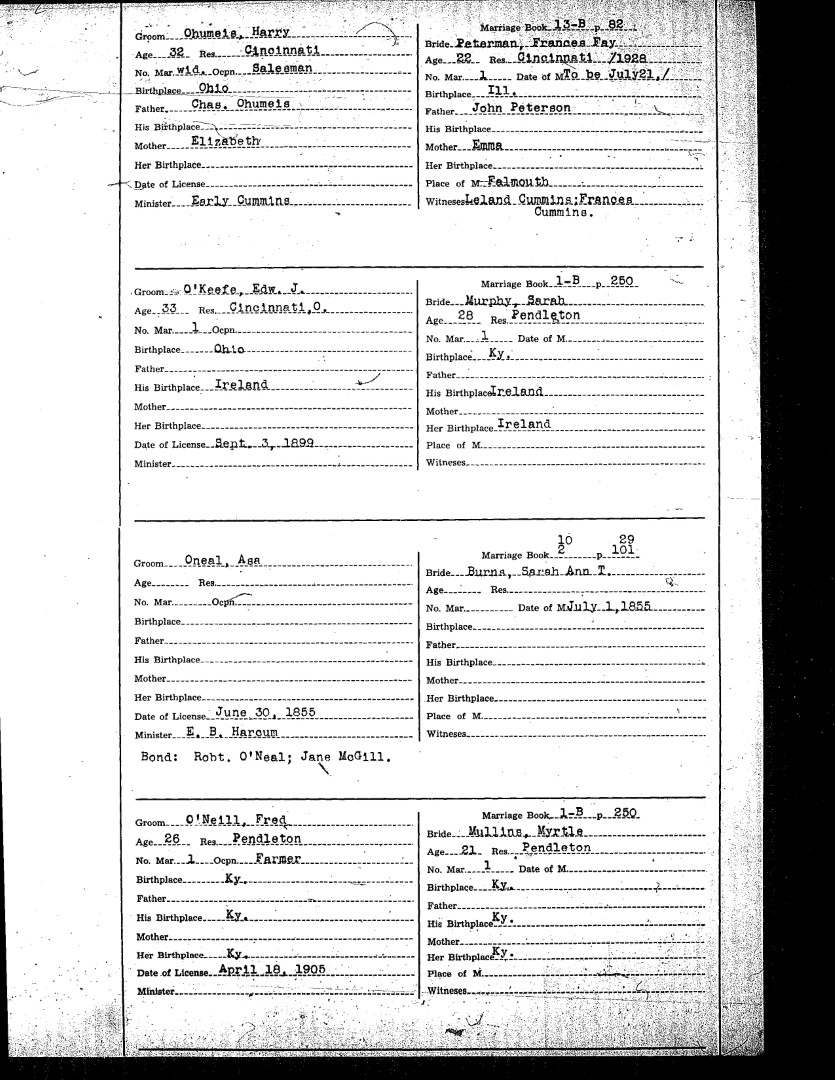 Groom Ohumeis, Harry
Age 32 Res. Cincinnati
No. Mar. wid. Ocpn. Salesman
Birthplace Ohio
Father Chas. Ohumeis
His Birthplace
Mother Elizabeth
Her Birthplace
Date of License
Minister Early Cummins
Marriage Book 13-B p. 82
Bride Peterman, Frances Fay
Age 22 Res. Cincinnati /1928
No. Mar. 1 Date of M. To be July21,/
Birthplace Ill.
Father John Peterson
His Birthplace
Mother Emma
Her Birthplace
Place of M. Falmouth
Witnesses Leland Cummins;Frances
Cummins.
Groom O'Keefe, Edw. J.
Age 33 Res. Cincinnati,O.
No. Mar. 1 Ocpn.
Birthplace Ohio
Father
His Birthplace Ireland
Mother
Her Birthplace
Date of License Sept. 3, 1899
Minister
Marriage Book 1-B p. 250
Bride Murphy, Sarah
Age 28 Res. Pendleton
No. Mar. 1 Date of M.
Birthplace Ky.
Father
His Birthplace Ireland
Mother
Her Birthplace Ireland
Place of M.
Witnesses
Groom Oneal, Asa
Age Res.
No. Mar. Ocpn.
Birthplace
Father
His Birthplace
Mother
Her Birthplace
Date of License June 30, 1855
Minister E. B. Harcum
Bond: Robt. O'Neal; Jane McGill.
10 29
Marriage Book 2 p. 101
Bride Burns, Sarah Ann T.
Age Res.
No. Mar. Date of M. July 1,1855
Birthplace
Father
His Birthplace
Mother
Her Birthplace
Place of M.
Witnesses
Groom O'Neill, Fred
Age 26 Res. Pendleton
No. Mar. 1 Ocpn. Farmer
Birthplace Ky.
Father
His Birthplace Ky.
Mother
Her Birthplace Ky.
Date of License April 18, 1905
Minister
Marriage Book 1-B p. 250
Bride Mullins, Myrtle
Age 21 Res. Pendleton
No. Mar. 1 Date of M.
Birthplace Ky.
Father
His Birthplace Ky.
Mother
Her Birthplace Ky.
Place of M.
Witnesses